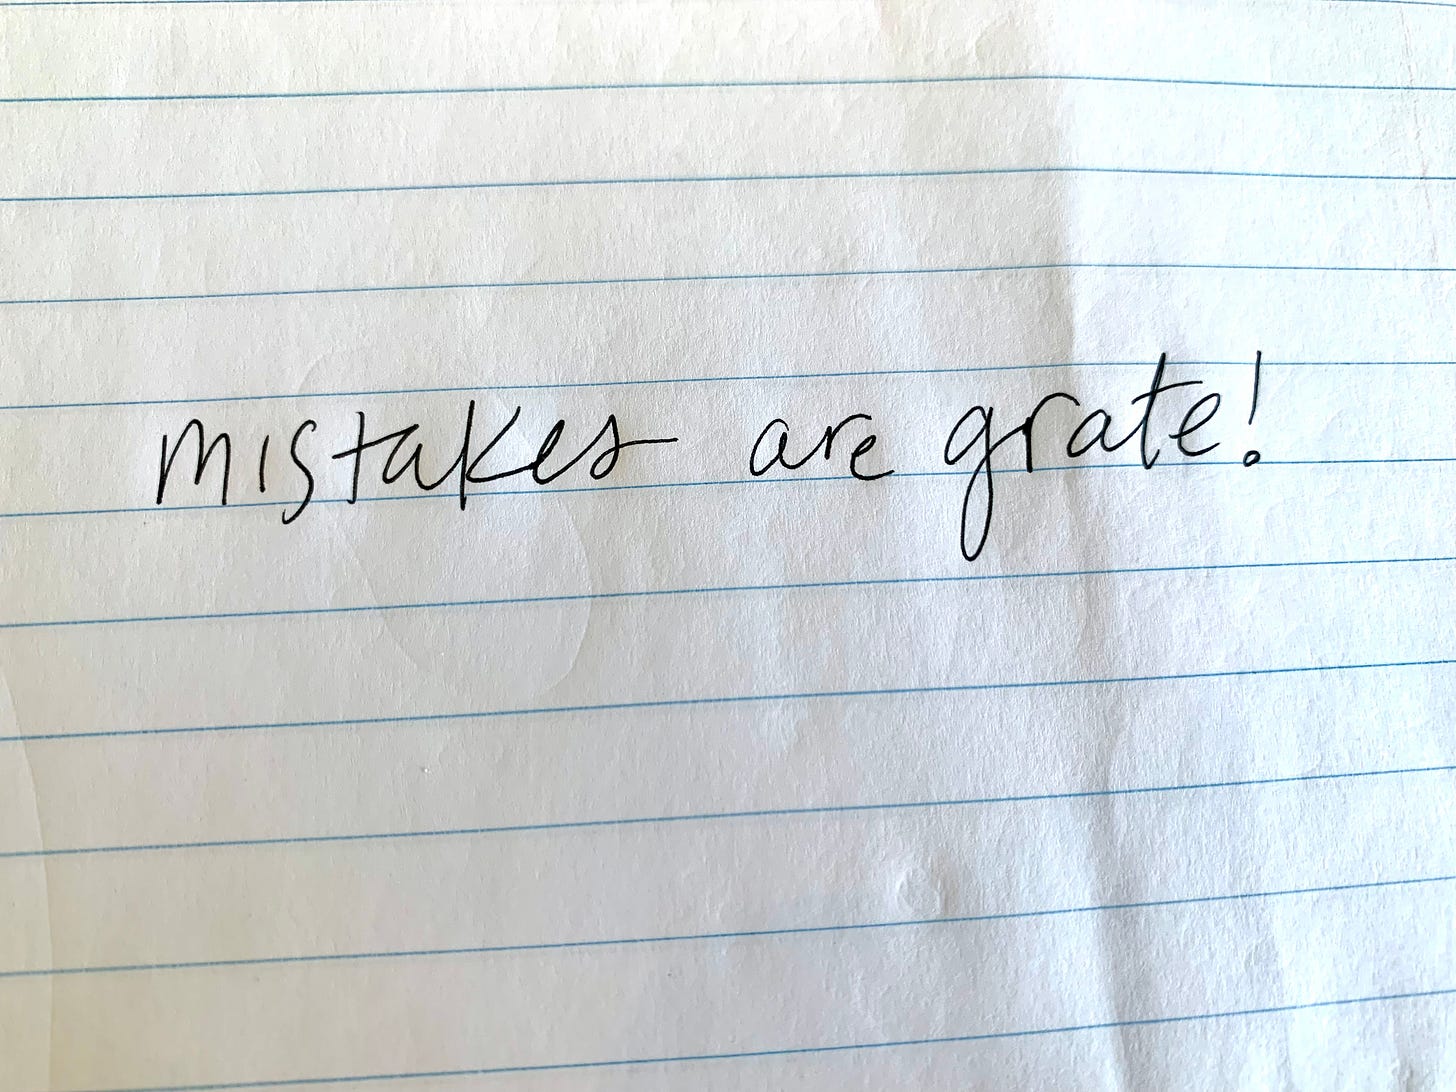 mistakes are grate!